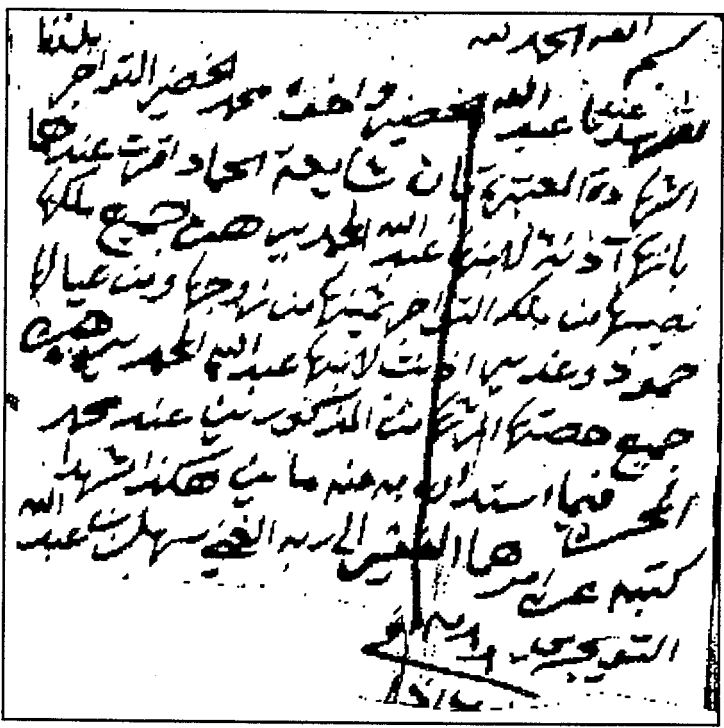 بسم الله الحمد لله
لقد شهد عندنا عبد الله الخضير واخوه محمد الخضير التواجر
الشهادة المعتبرة بان شايعة الحماد اقرت عندهما
بانها آذنة لابنها عبد الله المحمد يرهن جميع ملكها
نصيبها من ملك التواجر ثمينها من زوجها ومن عيالها
حمود وعيد اذنت لابنها عبد الله المحمد يرهن
جميع حصتها ارثها من المذكورين عند محمد
فيما استدان به منه ما بين هكذا شهدا
كتبه عن امرهما الفقير الى ربه الغني سهل بن عبد الله
التويجري